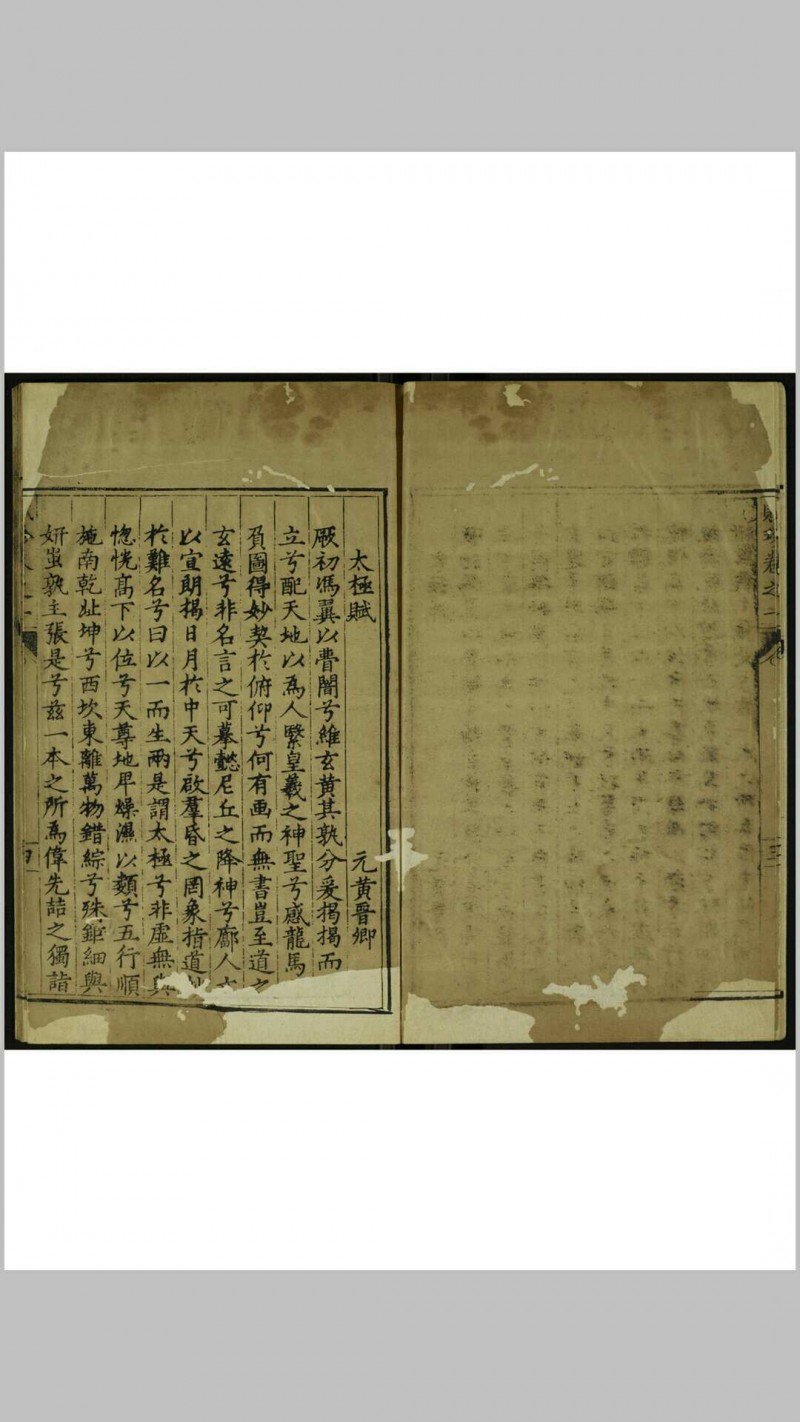 太極賦
元黃晉卿
厥初馮翼以瞢闇兮維玄黃其孰分爰揭揭而
立兮配天地以爲人繄皇羲之神聖兮感龍馬
負圖得妙契於俯仰兮何有画而無書豈至道之
玄遠兮非名言之可摹懿尼丘之降神兮廓人文
以宣朗揭日月於中天兮啟羣昏之罔象指道
於難名兮曰以一而生兩是謂太極兮非虛無與
惚恍高下以位兮天尊地卑燥濕以類兮五行順
施南乾北坤兮西坎東離萬物錯綜兮殊鉅細與
妍蚩孰主張是兮兹一本之所爲偉先喆之獨詣
卷之一